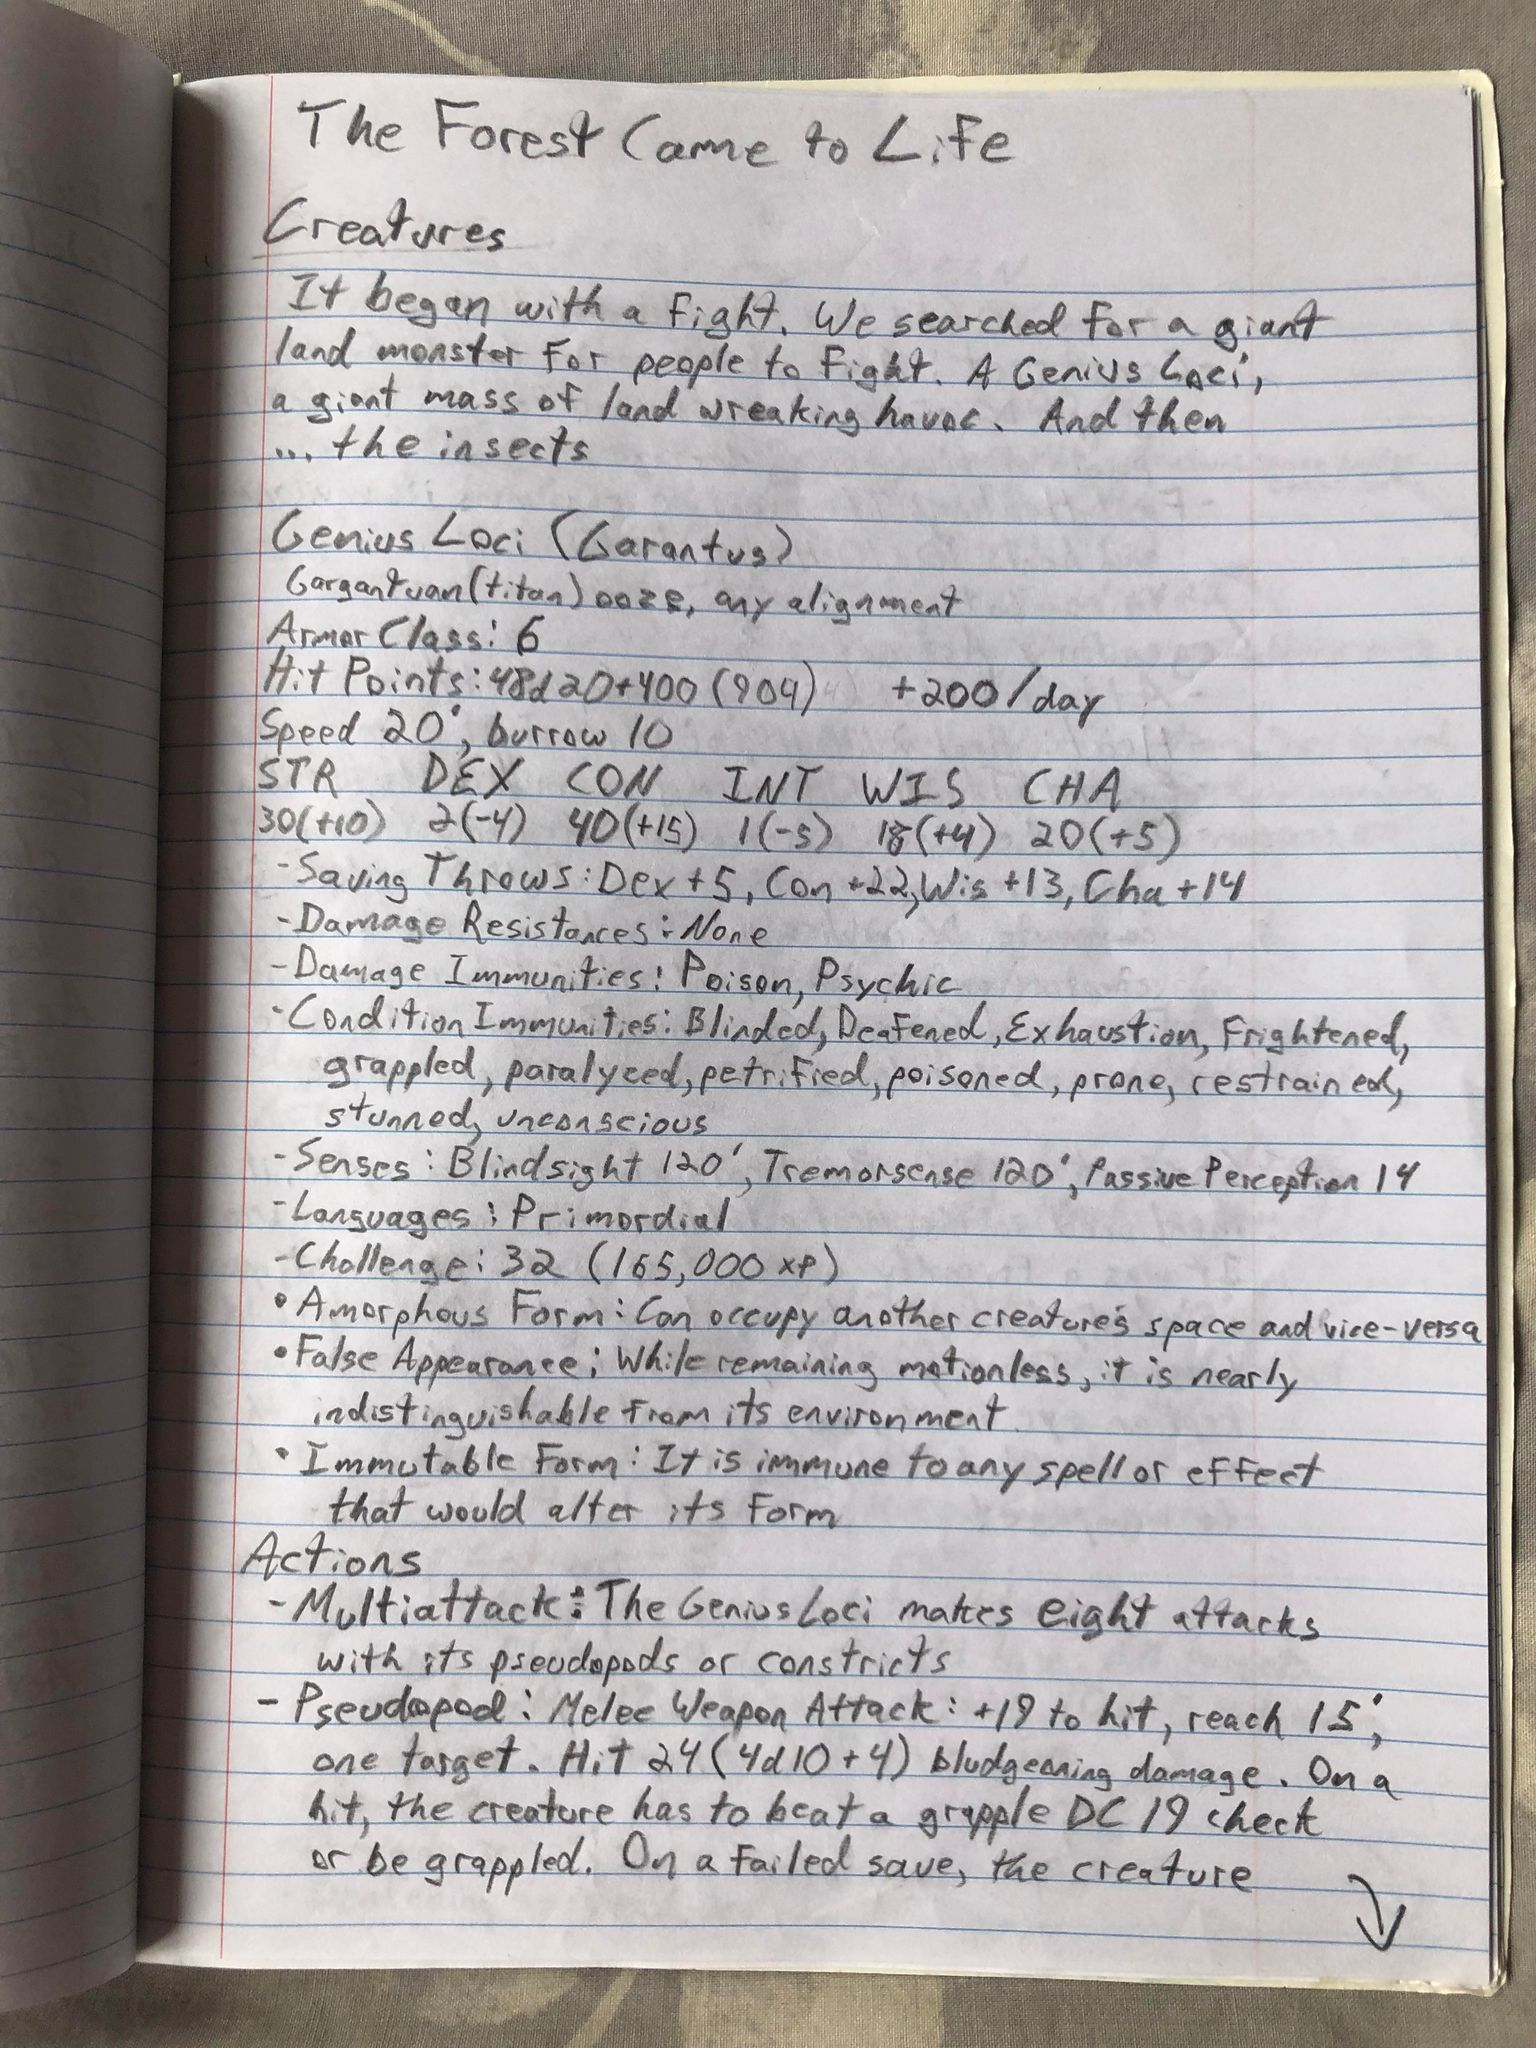 The Forest Came to Life
Creatures
It began with a fight. We searched for a giant
land monster for people to fight. A Genius Loci,
a giant mass of land wreaking havoc. And then
... the insects
Genius Loci (Garantus)
Gargantuan (titan) ooze, any alignment
Armor Class: 6
Hit Points: 48d20+400 (904) +200/day
Speed 20', burrow 10
STR DEX CON INT WIS CHA
30(+10) 2(-4) 40(+15) 1(-5) 18(+4) 20(+5)
-Saving Throws: Dex +5, Con +22, Wis +13, Cha +14
-Damage Resistances: None
-Damage Immunities: Poison, Psychic
-Condition Immunities: Blinded, Deafened, Exhaustion, Frightened,
grappled, paralyzed, petrified, poisoned, prone, restrained,
stunned, unconscious
-Senses: Blindsight 120', Tremorsense 120', Passive Perception 14
-Languages: Primordial
-Challenge: 32 (165,000 xp)
• Amorphous Form: Can occupy another creature's space and vice-versa
• False Appearance: While remaining motionless, it is nearly
indistinguishable from its environment
• Immutable Form: It is immune to any spell or effect
that would alter its form
Actions
- Multiattack: The Genius Loci makes eight attacks
with its pseudopods or constricts
- Pseudopod: Melee Weapon Attack: +19 to hit, reach 15',
one target. Hit 24 (4d10+4) bludgeoning damage. On a
hit, the creature has to beat a grapple DC 19 check
or be grappled. On a failed save, the creature